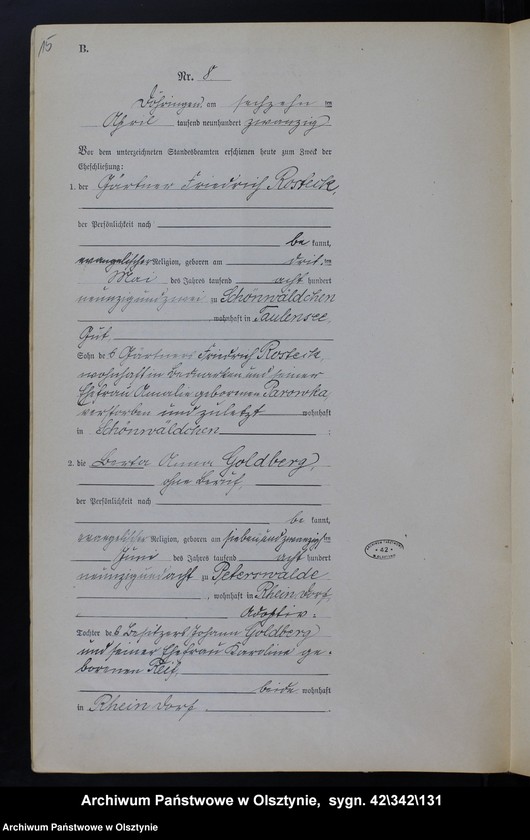 15
B.
Nr. 8
Döhringen am sechzehn ten
April tausend neunhundert zwanzig
Vor dem unterzeichneten Standesbeamten erschienen heute zum Zweck der
Eheschließung:
1. der Gärtner Friedrich Rosteck,
der Persönlichkeit nach
be kannt,
evangelischer Religion, geboren am drit ten
Mai des Jahres tausend acht hundert
neunzigundzwei zu Schönwäldchen
wohnhaft in Taulensee,
Gut
Sohn des Gärtners Friedrich Rosteck,
wohnhaft in und seiner
Ehefrau Amalie geborenen Parowka,
verstorben und zuletzt wohnhaft
in Schönwäldchen ;
2. die Berta Anna Goldberg,
ohne Beruf,
der Persönlichkeit nach
be kannt,
evangelischer Religion, geboren am siebenundzwanzig ten
Juni des Jahres tausend acht hundert
neunzigundacht zu Peterswalde
, wohnhaft in Rheinsdorf,
Adoptiv-
Tochter des Besitzers Johann Goldberg
und seiner Ehefrau Karoline ge-
borenen
beide wohnhaft
in Rheinsdorf .
ARCHIWUM PAŃSTWOWE
* 42 *
W OLSZTYNIE
Archiwum Państwowe w Olsztynie, sygn. 42\342\131
Archiwum Państwowe w Olsztynie